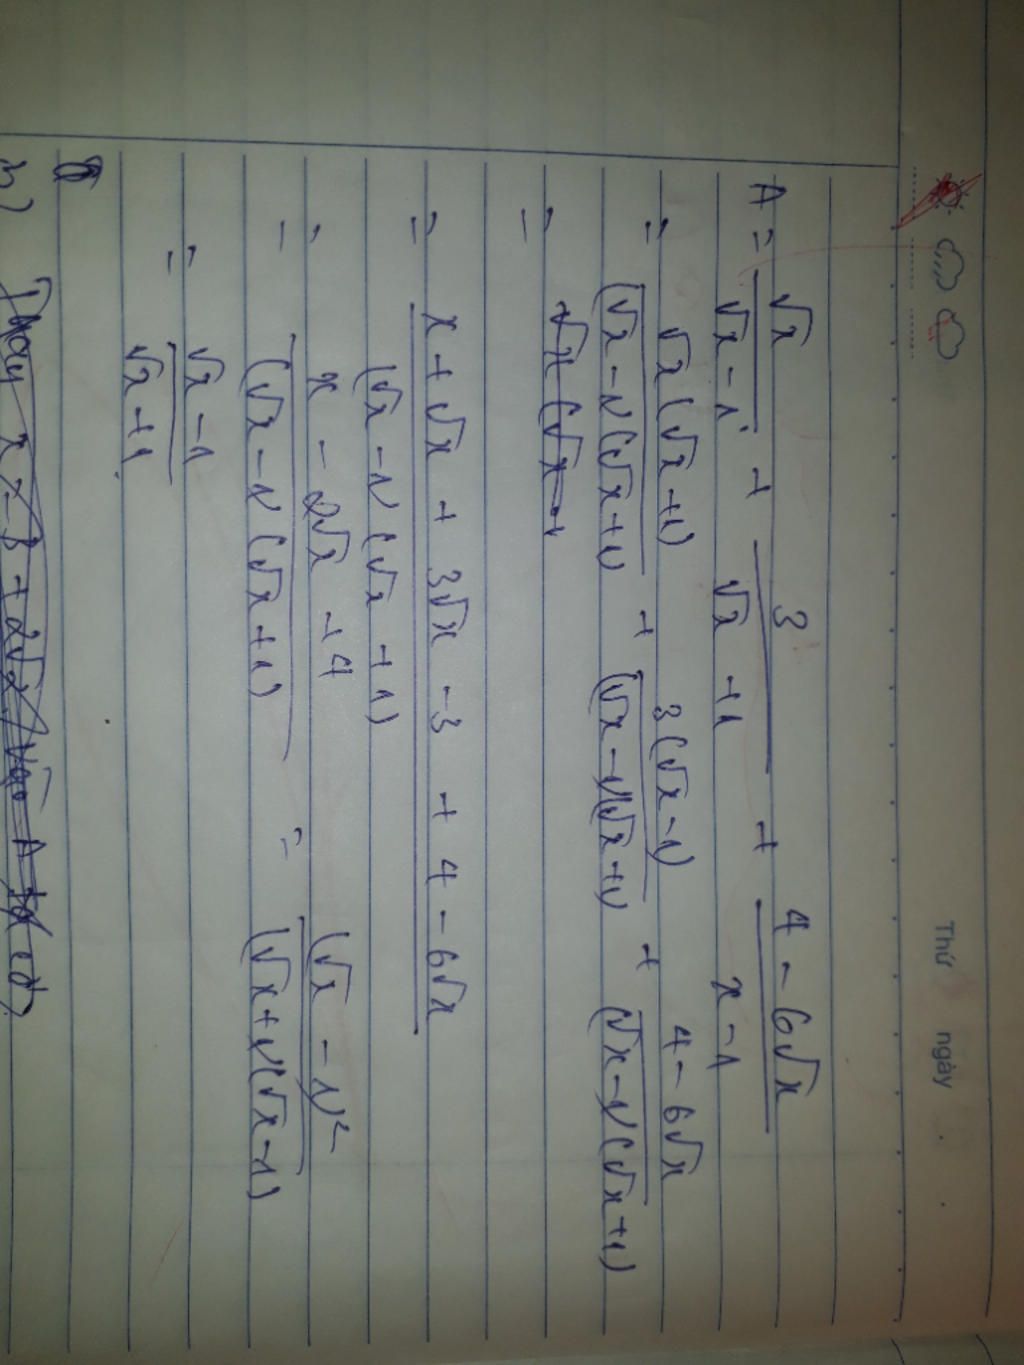 Thứ ngày
A = √x / (√x - 1) + 3 / (√x + 1) + (4 - 6√x) / (x - 1)
= √x(√x+1) / (√x-1)(√x+1) + 3(√x-1) / (√x-1)(√x+1) + (4 - 6√x) / (√x-1)(√x+1)
= √x(√x+1
= (x + √x + 3√x - 3 + 4 - 6√x) / (√x-1)(√x+1)
= (x - 2√x + 1) / (√x-1)(√x+1) = (√x-1)² / (√x+1)(√x-1)
= (√x - 1) / (√x + 1)
b) Thay x = 3 + 2√2 vào A ta có